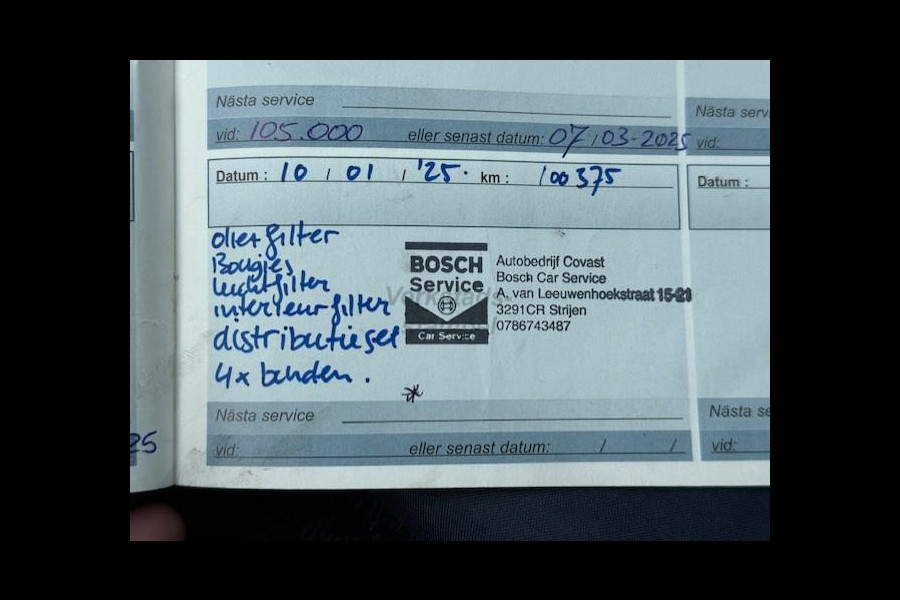 Nästa service
vid: 105.000 eller senast datum: 07/03-2025
Nästa serv
vid:
Datum : 10 / 01 / '25. km : 100375
Datum :
olie+filter
Bougies
luchtfilter
interieurfilter
distributieset
4x banden.
BOSCH
Service
Car Service
Autobedrijf Covast
Bosch Car Service
A. van Leeuwenhoekstraat 15-21
3291CR Strijen
0786743487
*
Nästa service
vid: eller senast datum: / /
Nästa se
vid:
25